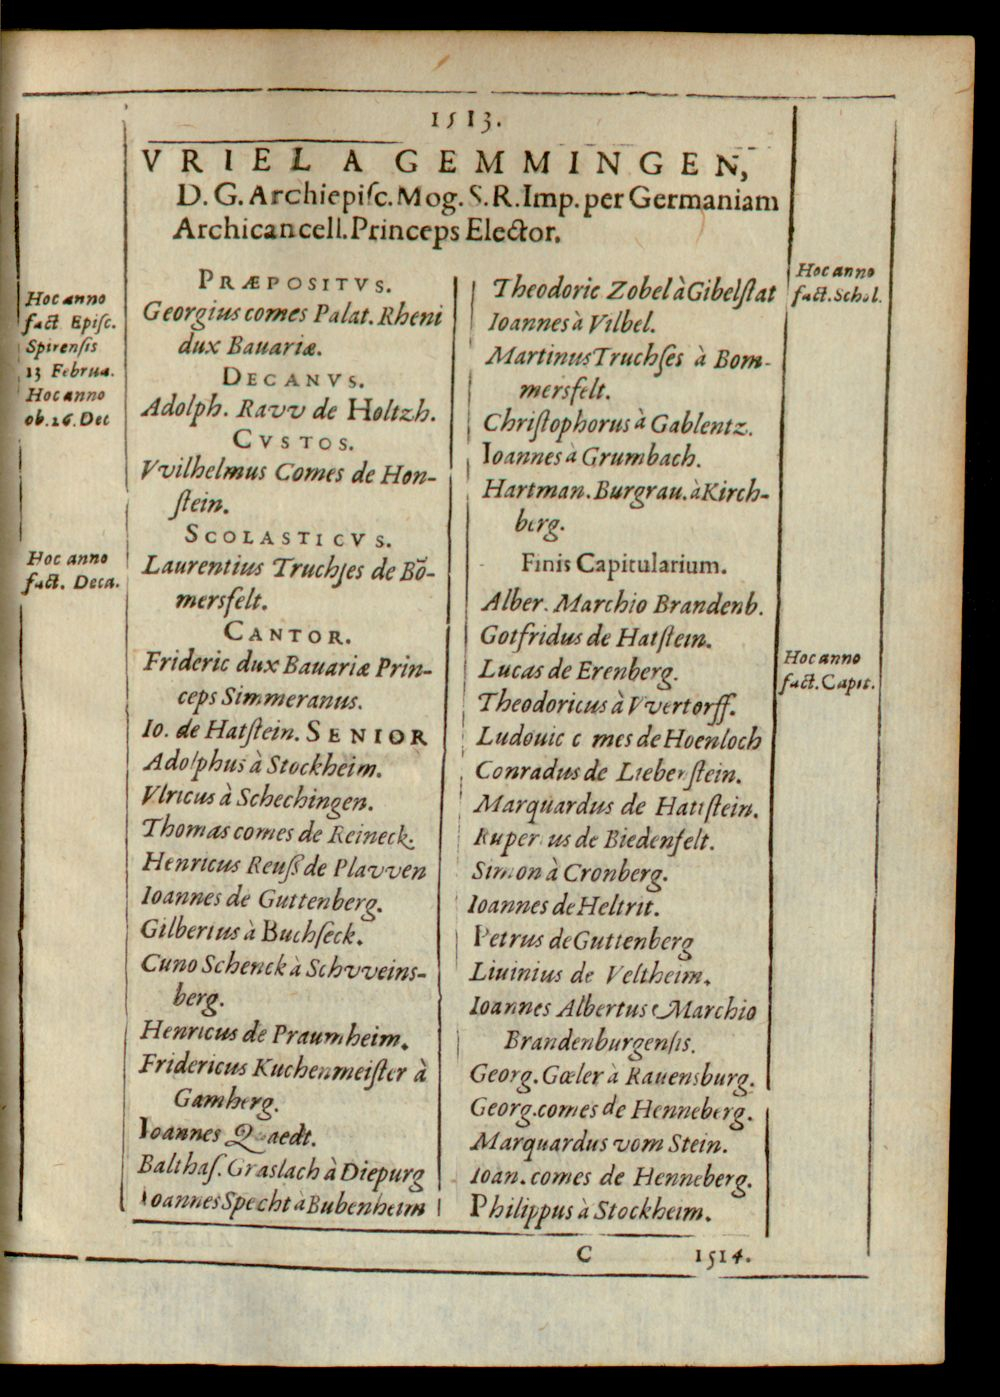 1513.
VRIEL A GEMMINGEN,
D. G. Archiepiſc. Mog. S. R. Imp. per Germaniam
Archicancell. Princeps Elector.
Hoc anno
fact Epiſc.
Spirenſis
13 Februa.
Hoc anno
ob. 26. Dec
Hoc anno
fact. Deca.
PRÆPOSITVS.
Georgius comes Palat. Rheni
dux Bauariæ.
DECANVS.
Adolph. Ravv de Holtzh.
CVSTOS.
Vvilhelmus Comes de Hon-
ſtein.
SCOLASTICVS.
Laurentius Truchſes de Bō-
mersfelt.
CANTOR.
Frideric dux Bauariæ Prin-
ceps Simmeranus.
Io. de Hatſtein. SENIOR
Adolphus à Stockheim.
Vlricus à Schechingen.
Thomas comes de Reineck.
Henricus Reuß de Plavven
Ioannes de Guttenberg.
Gilbertus à Buchſeck.
Cuno Schenck à Schvveins-
berg.
Henricus de Praumheim.
Fridericus Kuchenmeiſter à
Gamberg.
Ioannes Quaedt.
Balthaſ. Graslach à Diepurg
Ioannes Specht à Bubenheim
Theodoric Zobel à Gibelſtat
Ioannes à Vilbel.
Martinus Truchſes à Bom-
mersfelt.
Chriſtophorus à Gablentz.
Ioannes à Grumbach.
Hartman. Burgrau. à Kirch-
berg.
Finis Capitularium.
Alber. Marchio Brandenb.
Gotfridus de Hatſtein.
Lucas de Erenberg.
Theodoricus à Vvertorff.
Ludouic c mes de Hoenloch
Conradus de Liebenſtein.
Marquardus de Hatiſtein.
Ruper us de Biedenfelt.
Simon à Cronberg.
Ioannes de Heltrit.
Petrus de Guttenberg
Liuinius de Veltheim.
Ioannes Albertus Marchio
Brandenburgenſis.
Georg. Gœler à Rauensburg.
Georg. comes de Henneberg.
Marquardus vom Stein.
Ioan. comes de Henneberg.
Philippus à Stockheim.
Hoc anno
fact. Schol.
Hoc anno
fact. Capit.
C 1514.